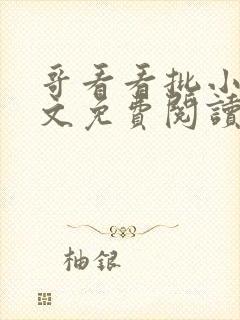 哥看看批小
文免費閱讀
柚銀